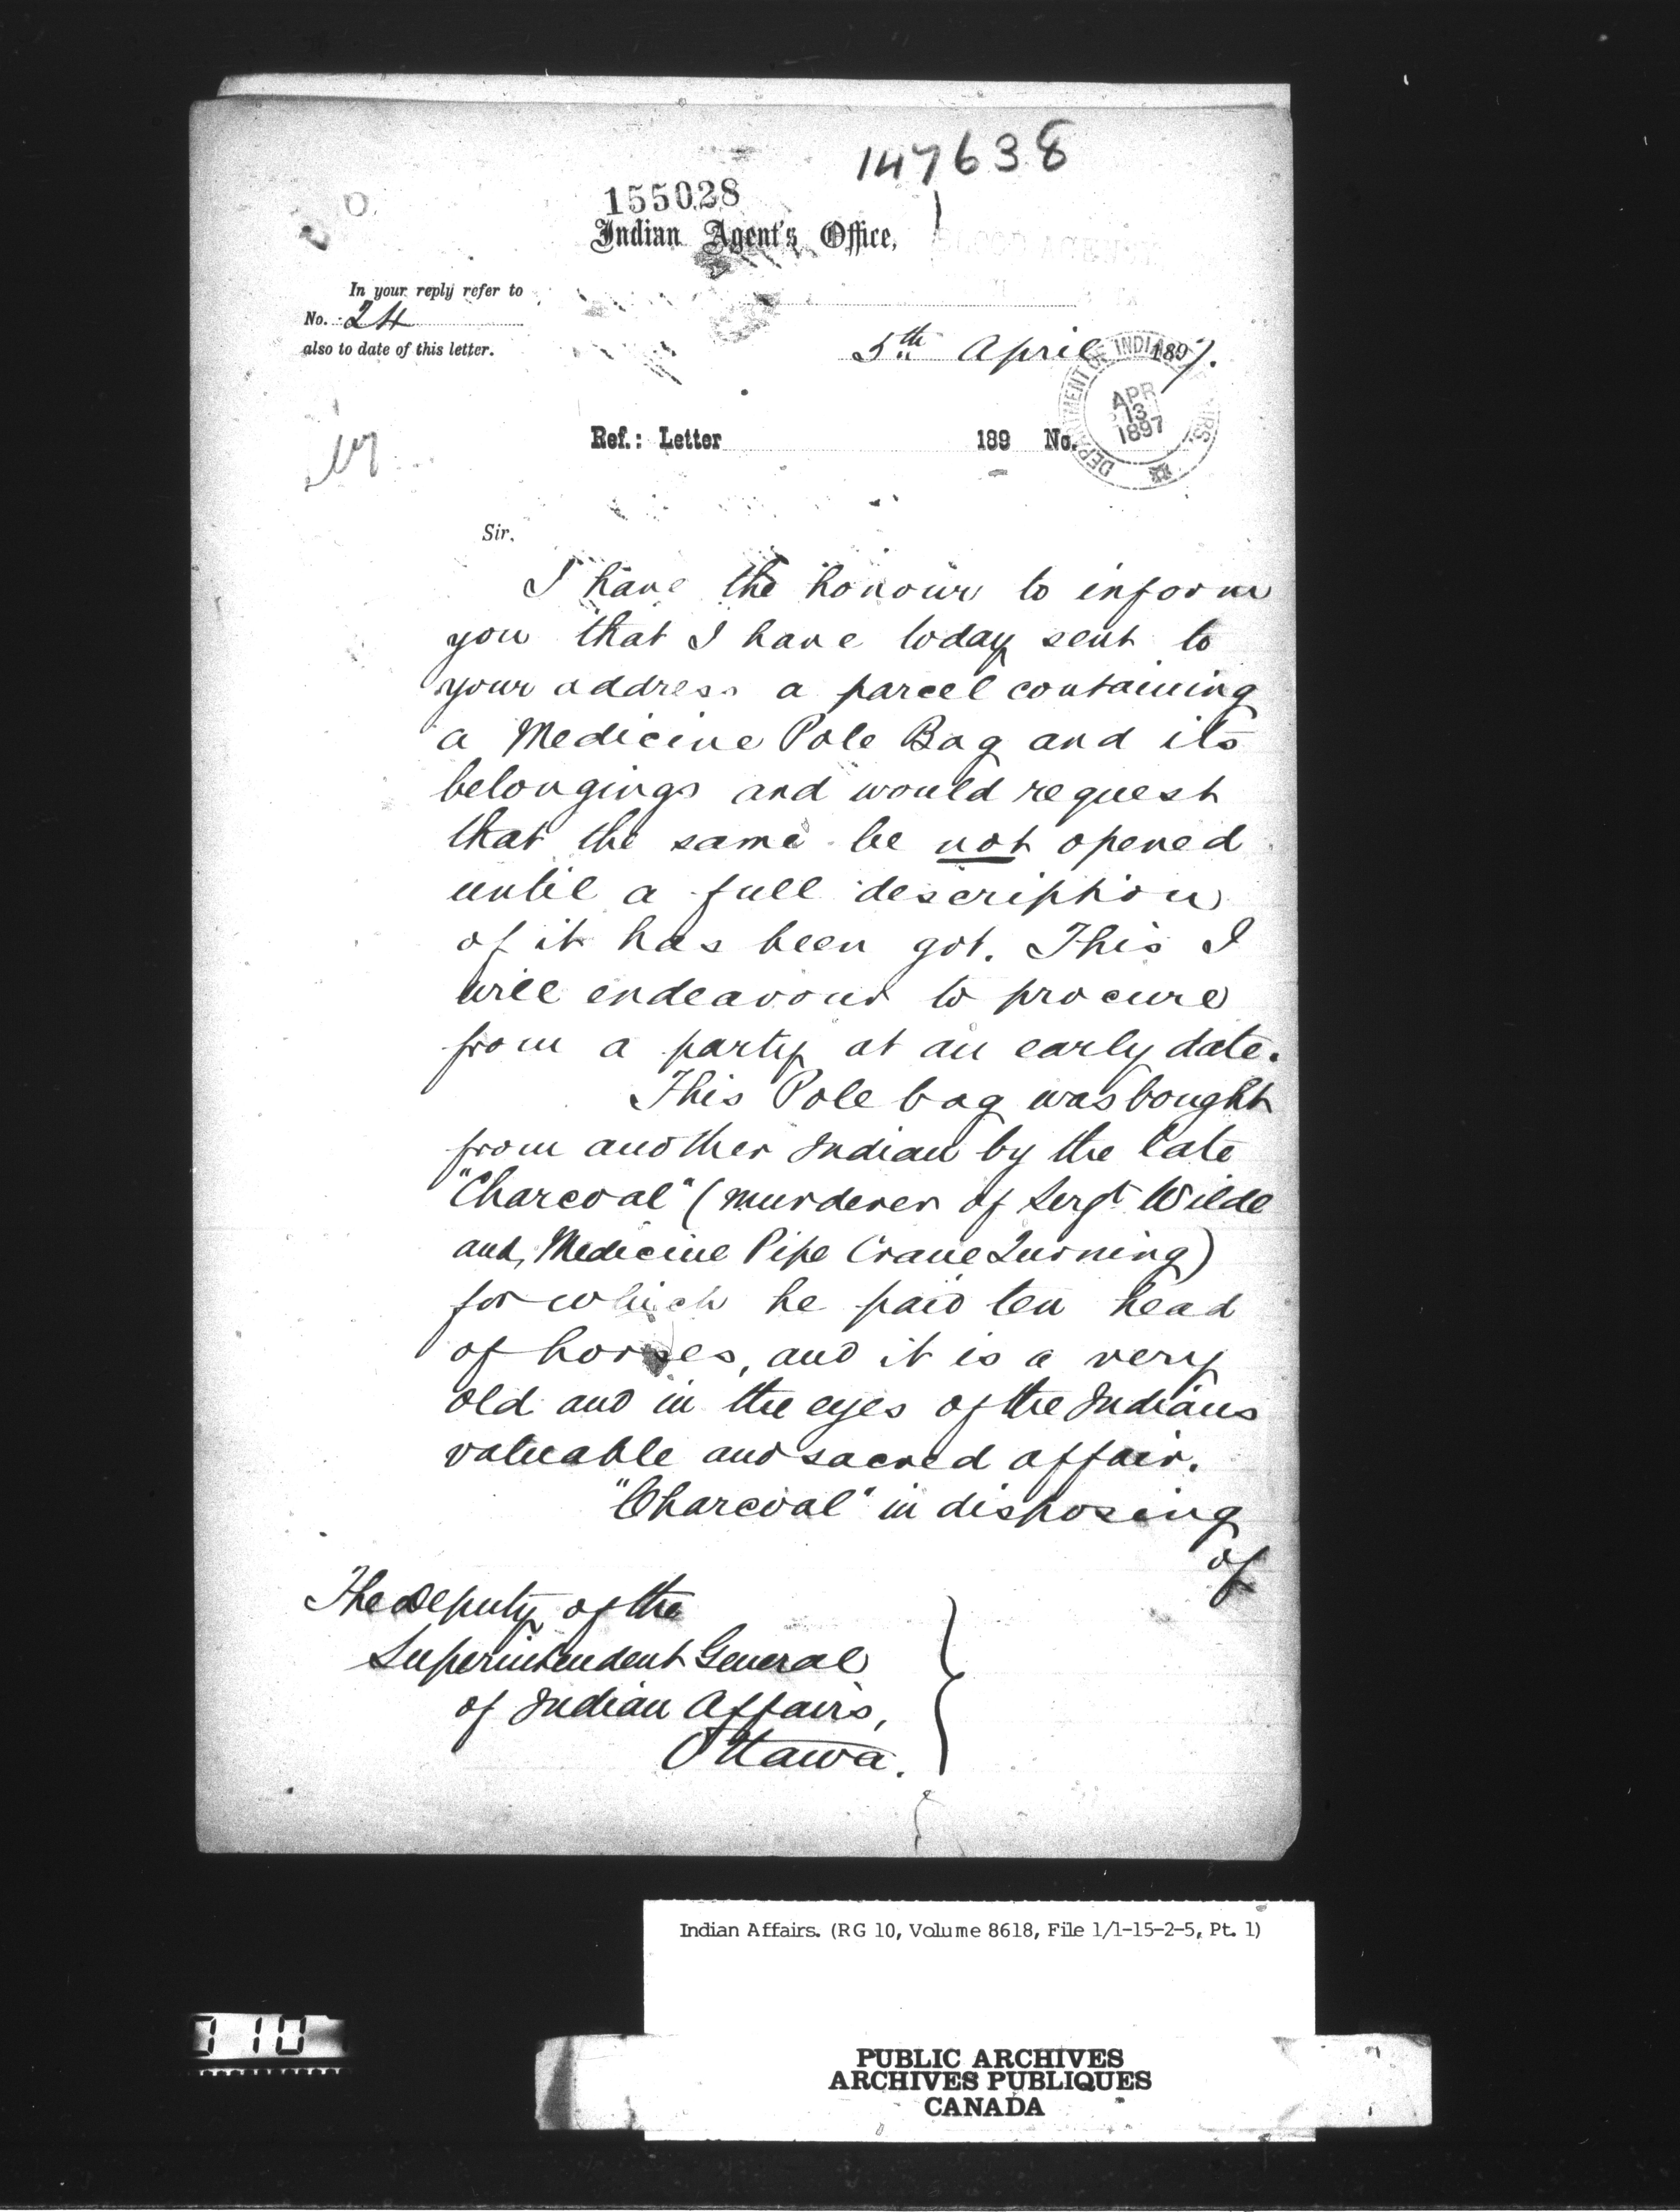 147638
155028
Indian Agent's Office,
In your reply refer to
No. 24
also to date of this letter.
5th April 1897.
DEPARTMENT OF INDIAN AFFAIRS.
APR
13
1897
Ref.: Letter 189 No.
Sir,
I have the honour to inform
you that I have today sent to
your address a parcel containing
a Medicine Pole Bag and its
belongings and would request
that the same be not opened
until a full description
of it has been got. This I
will endeavour to procure
from a party at an early date.
This Pole bag was bought
from another Indian by the late
"Charcoal" (murderer of Sergt Wilde
and, Medicine Pipe Crane Turning)
for which he paid ten head
of horses, and it is a very
old and in the eyes of the Indians
valuable and sacred affair.
"Charcoal" in disposing
of
The Deputy of the
Superintendent General
of Indian Affairs,
Ottawa.
Indian Affairs. (RG 10, Volume 8618, File 1/1-15-2-5, Pt. 1)
110
PUBLIC ARCHIVES
ARCHIVES PUBLIQUES
CANADA